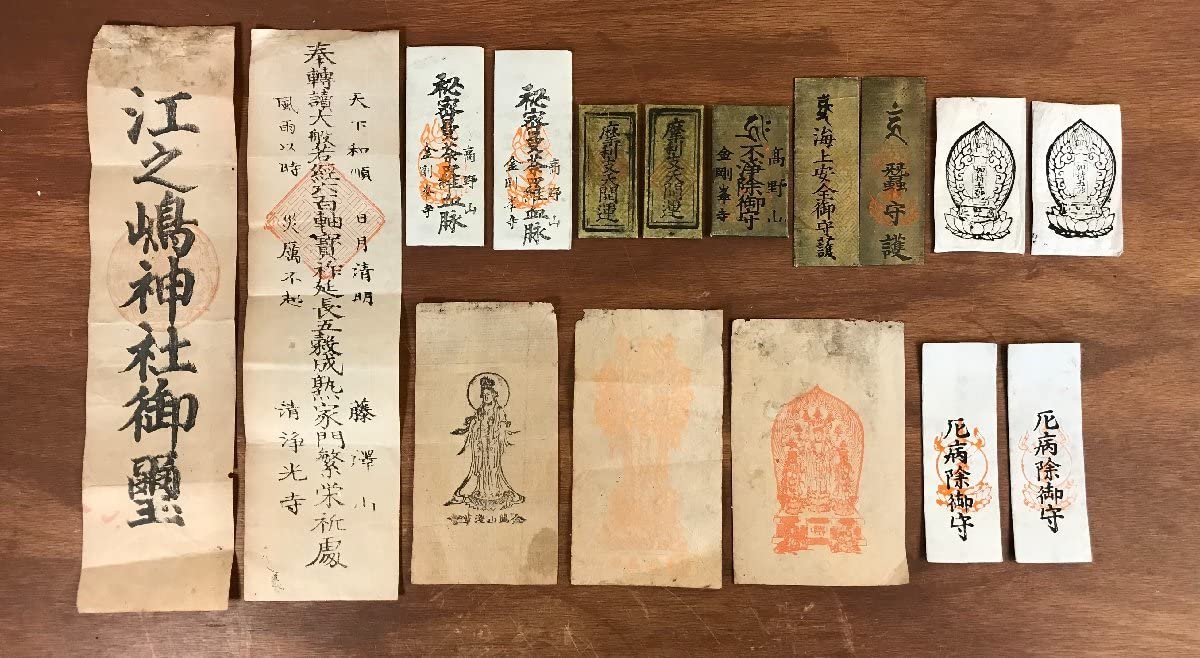 江之嶋神社御璽
奉轉讀大般若經六百軸寶祚延長五穀成熟家門繁栄祈處
天下和順 日月清明
風雨以時 災厲不起
藤澤山
清浄光寺
高野山
秘密曼荼羅血脉
金剛峯寺
高野山
秘密曼荼羅血脉
金剛峯寺
摩利支天開運
摩利支天開運
高野山
不津除御守
金剛峯寺
海上安全御守護
蠶守護
厄病除御守
厄病除御守